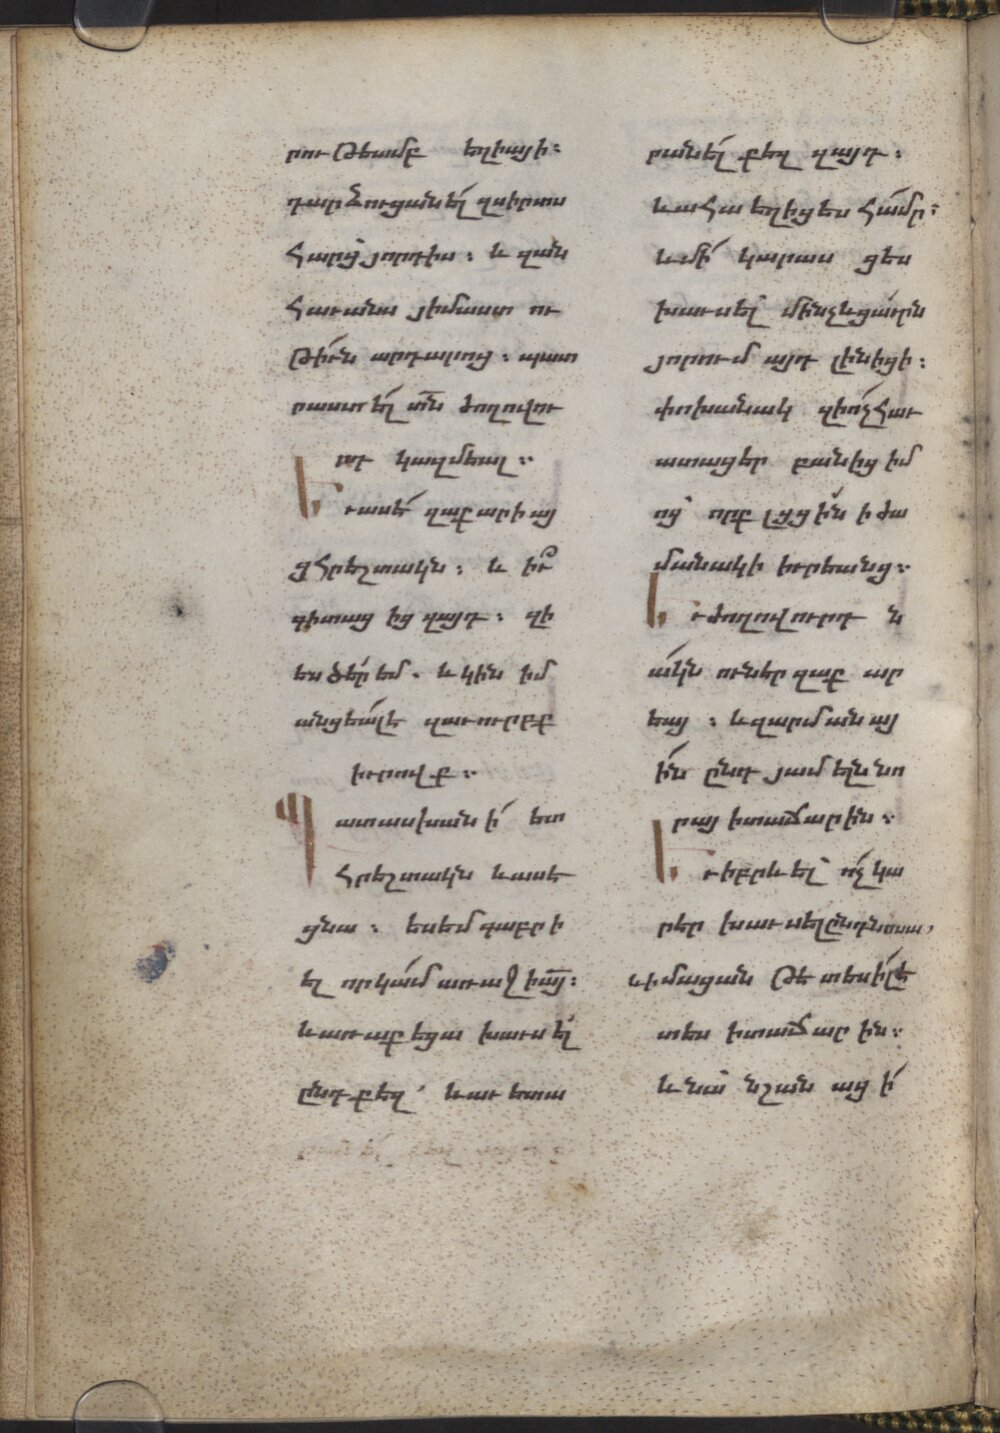 րութեամբ եղիայի։
դարձուցանել զսիրտս
հարց յորդիս։ և զան
հաւանս յիմաստ ու
թիւն արդարոց։ պատ
րաստել տն ժողովու
րդ կազմեալ։
Եւ ասէ զաքարիայ
ցհրեշտակն։ և իւ
գիտացից զայդ։ զի
ես ծեր եմ. և կին իմ
անցեալ է զաւուրբք
իւրովք։
Պատասխանի ետ
հրեշտակն և ասէ
ցնա։ ես եմ գաբրի
ել որ կամ առաջի այ։
և առաքեցա խաւսել
ընդ քեզ՝ և աւետա
րանել քեզ զայդ։
և ահա եղիցես համր։
և մի կարաս ցես
խաւսել մինչև ցաւրն
յորում այդ լինիցի։
փոխանակ զի ոչ հաւ
ատացեր բանից իմ
ոց՝ որք լցցին ի ժա
մանակի իւրեանց։
Եւ ժողովուրդն
ակն ունէր զաքար
եայ։ և զարմանայ
ին ընդ յամելն նո
րայ ի տաճարին։
Եւ իբրև ել՝ ոչ կա
րեր խաւսել ընդ նոսա,
և իմացան թե տեսիլ է
տես ի տաճարին։
և նա՝ նշանացի